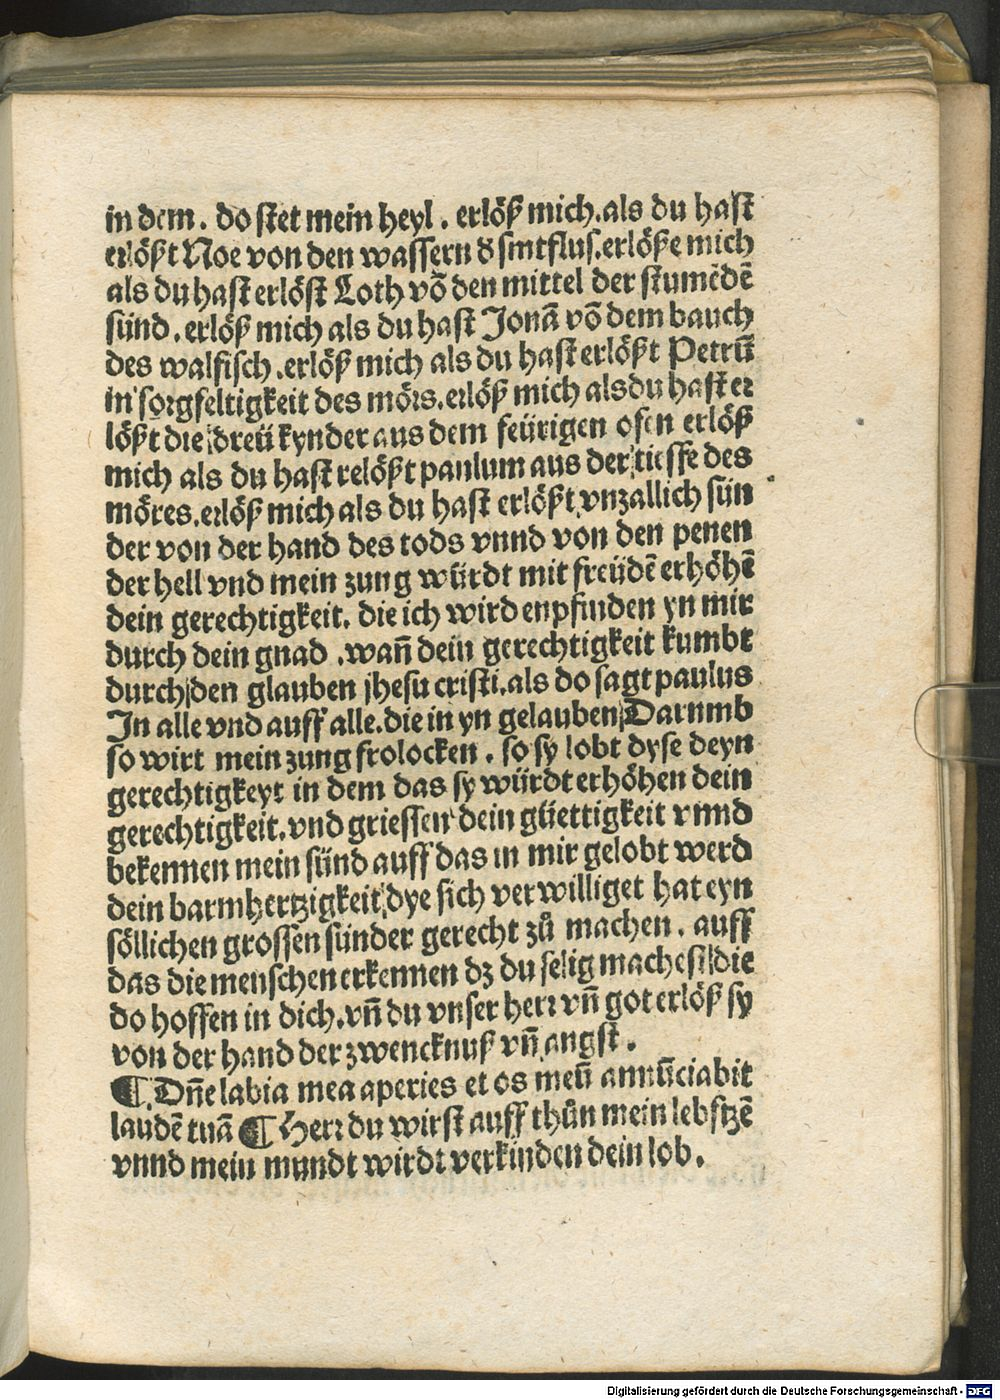 in dem. do stet mein heyl. erlöß mich. als du hast
erlößt Noe von den wassern d̾ sintflus. erlöße mich
als du hast erlöst Loth võ den mittel der stumẽdẽ
sünd. erlöß mich als du hast Jonã võ dem bauch
des walfisch. erlöß mich als du hast erlößt Petrũ
in sorgfeltigkeit des mörs. erlöß mich als du hast er
lößt die dreü kynder aus dem feürigen ofen erlöß
mich als du hast relößt paulum aus der tieffe des
möres. erlöß mich als du hast erlößt vnzallich sün
der von der hand des tods vnnd von den penen
der hell vnd mein zung würdt mit freüdẽ erhöhẽ
dein gerechtigkeit. die ich wird enpfinden yn mir
durch dein gnad. wañ dein gerechtigkeit kumbt
durch den glauben jhesu cristi. als do sagt paulus
In alle vnd auff alle. die in yn gelauben Darumb
so wirt mein zung frolocken. so sy lobt dyse deyn
gerechtigkeyt in dem das sy würdt erhöhen dein
gerechtigkeit. vnd griessen dein güettigkeit vnnd
bekennen mein sünd auff das in mir gelobt werd
dein barmhertzigkeit dye sich verwilliget hat eyn
söllichen grossen sünder gerecht zů machen. auff
das die menschen erkennen dz du selig machest die
do hoffen in dich. vñ du vnser herr vñ got erlöß sy
von der hand der zwencknuß vñ angst.
¶ Dñe labia mea aperies et os meũ annũciabit
laudẽ tuã ¶ Herr du wirst auff thůn mein lebstzẽ
vnnd mein mundt wirdt verkinden dein lob.
Digitalisierung gefördert durch die Deutsche Forschungsgemeinschaft - DFG